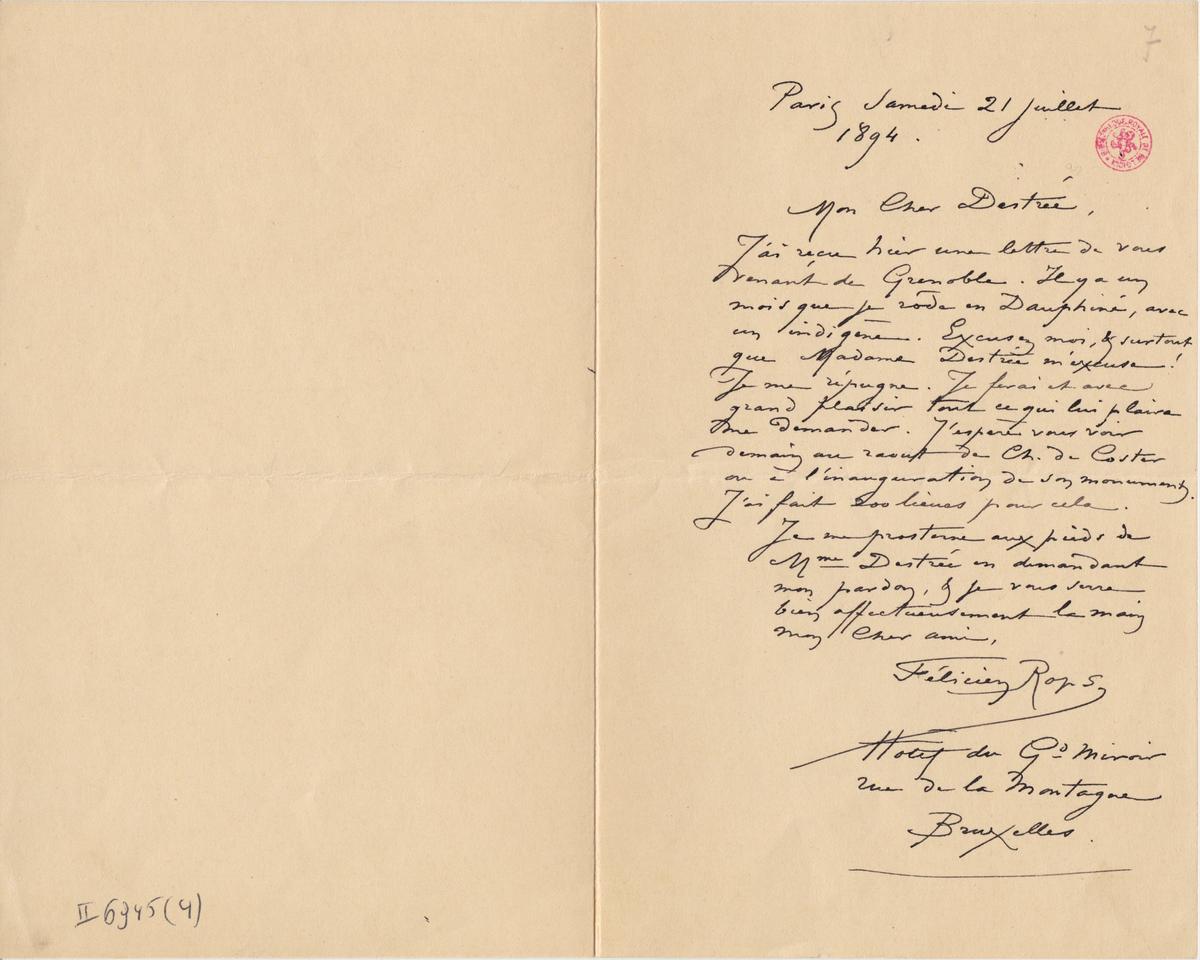 7
Paris Samedi 21 juillet
1894.
Mon Cher Destrée,
J'ai reçu hier une lettre de vous
venant de Grenoble. Il y a un
mois que je rôde en Dauphiné, avec
un indigène. Excusez moi, & surtout
que Madame Destrée m'excuse!
Je me répugne. Je ferai et avec
grand plaisir tout ce qui lui plaira
me demander. J'espère vous voir
demain au raout de Ch. de Coster
ou à l'inauguration de son monument.
J'ai fait 200 lieues pour cela.
Je me prosterne aux pieds de
Mme Destrée en demandant
mon pardon, & je vous serre
bien affectueusement la main
mon Cher ami,
Félicien Rops
Hotel du Gd Miroir
rue de la Montagne
Bruxelles.
II 6945(4)